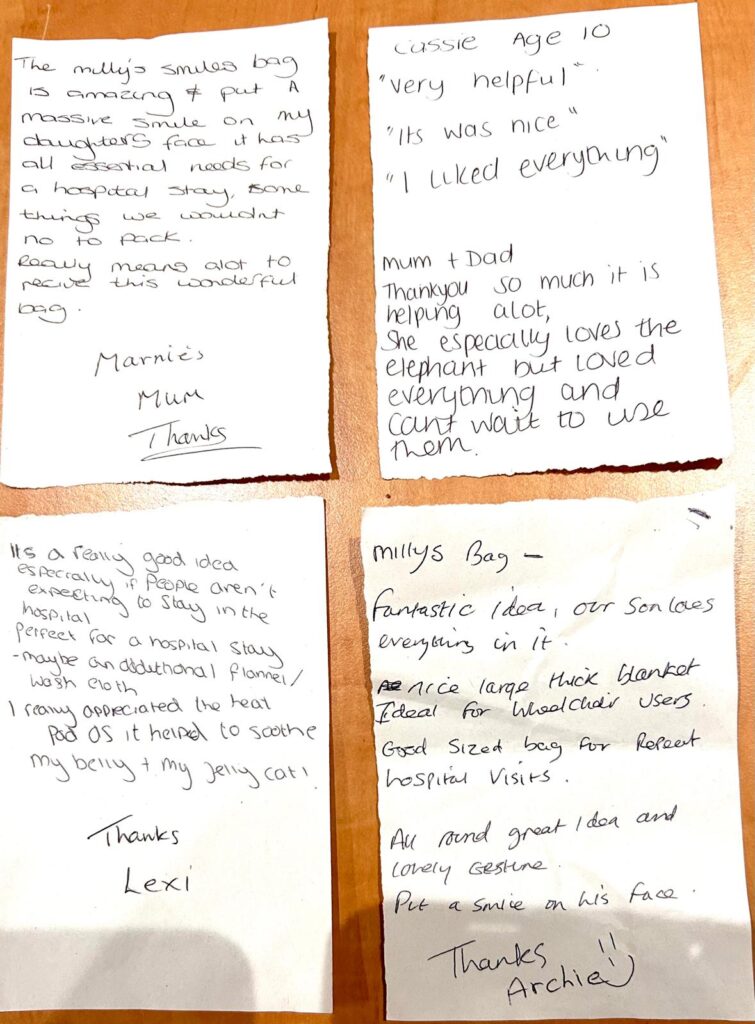 The milly's smiles bag
is amazing & put A
massive smile on my
daughters face it has
all essential needs for
a hospital stay, some
things we wouldnt
no to pack.
Really means alot to
recive this wonderful
bag.
Marnie's
Mum
Thanks
Cassie Age 10
"very helpful".
"Its was nice"
"I liked everything"
mum + Dad
Thankyou so much it is
helping alot,
She especially loves the
elephant but loved
everything and
Cant wait to use
them.
Its a really good idea
especially if people aren't
expecting to stay in the
hospital
perfect for a hospital stay
- maybe an additional flannel/
wash cloth
I really appreciated the heat
pad as it helped to soothe
my belly + my Jelly cat!
Thanks
Lexi
millys Bag -
Fantastic idea, our son loves
everything in it.
nice large thick blanket
Ideal for wheelchair users.
Good sized bag for Repeat
hospital visits.
All round great idea and
lovely Gesture.
Put a smile on his face.
Thanks
Archie